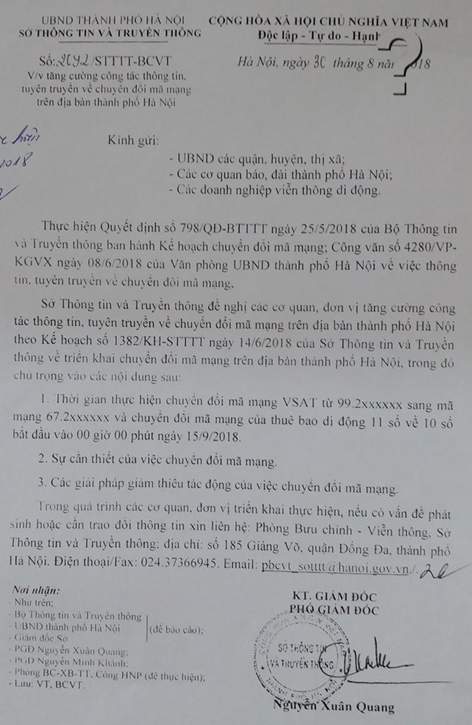 UBND THÀNH PHỐ HÀ NỘI
SỞ THÔNG TIN VÀ TRUYỀN THÔNG
CỘNG HÒA XÃ HỘI CHỦ NGHĨA VIỆT NAM
Độc lập - Tự do - Hạnh
Số: /STTTT-BCVT
V/v tăng cường công tác thông tin,
tuyên truyền về chuyển đổi mã mạng
trên địa bàn thành phố Hà Nội
Hà Nội, ngày 30 tháng 8 năm 2018
2018
Kính gửi:
- UBND các quận, huyện, thị xã;
- Các cơ quan báo, đài thành phố Hà Nội;
- Các doanh nghiệp viễn thông di động.
Thực hiện Quyết định số 798/QĐ-BTTTT ngày 25/5/2018 của Bộ Thông tin
và Truyền thông ban hành Kế hoạch chuyển đổi mã mạng; Công văn số 4280/VP-
KGVX ngày 08/6/2018 của Văn phòng UBND thành phố Hà Nội về việc thông
tin, tuyên truyền về chuyển đổi mã mạng,
Sở Thông tin và Truyền thông đề nghị các cơ quan, đơn vị tăng cường công
tác thông tin, tuyên truyền về chuyển đổi mã mạng trên địa bàn thành phố Hà Nội
theo Kế hoạch số 1382/KH-STTTT ngày 14/6/2018 của Sở Thông tin và Truyền
thông về triển khai chuyển đổi mã mạng trên địa bàn thành phố Hà Nội, trong đó
chú trọng vào các nội dung sau:
1. Thời gian thực hiện chuyển đổi mã mạng VSAT từ 99.2xxxxxx sang mã
mạng 67.2xxxxxx và chuyển đổi mã mạng của thuê bao di động 11 số về 10 số
bắt đầu vào 00 giờ 00 phút ngày 15/9/2018.
2. Sự cần thiết của việc chuyển đổi mã mạng.
3. Các giải pháp giảm thiểu tác động của việc chuyển đổi mã mạng.
Trong quá trình các cơ quan, đơn vị triển khai thực hiện, nếu có vấn đề phát
sinh hoặc cần trao đổi thông tin xin liên hệ: Phòng Bưu chính - Viễn thông, Sở
Thông tin và Truyền thông; địa chỉ: số 185 Giảng Võ, quận Đống Đa, thành phố
Hà Nội. Điện thoại/Fax: 024.37366945. Email: pbcvt_sotttt@hanoi.gov.vn./.
Nơi nhận:
- Như trên;
- Bộ Thông tin và Truyền thông
- UBND thành phố Hà Nội
- Giám đốc Sở
(để báo cáo);
- PGĐ Nguyễn Xuân Quang;
- PGĐ Nguyễn Minh Khánh;
- Phòng BC-XB-TT, Công HNP (để thực hiện);
- Lưu: VT, BCVT.
KT. GIÁM ĐỐC
PHÓ GIÁM ĐỐC
SỞ THÔNG TIN
VÀ TRUYỀN THÔNG
Nguyễn Xuân Quang